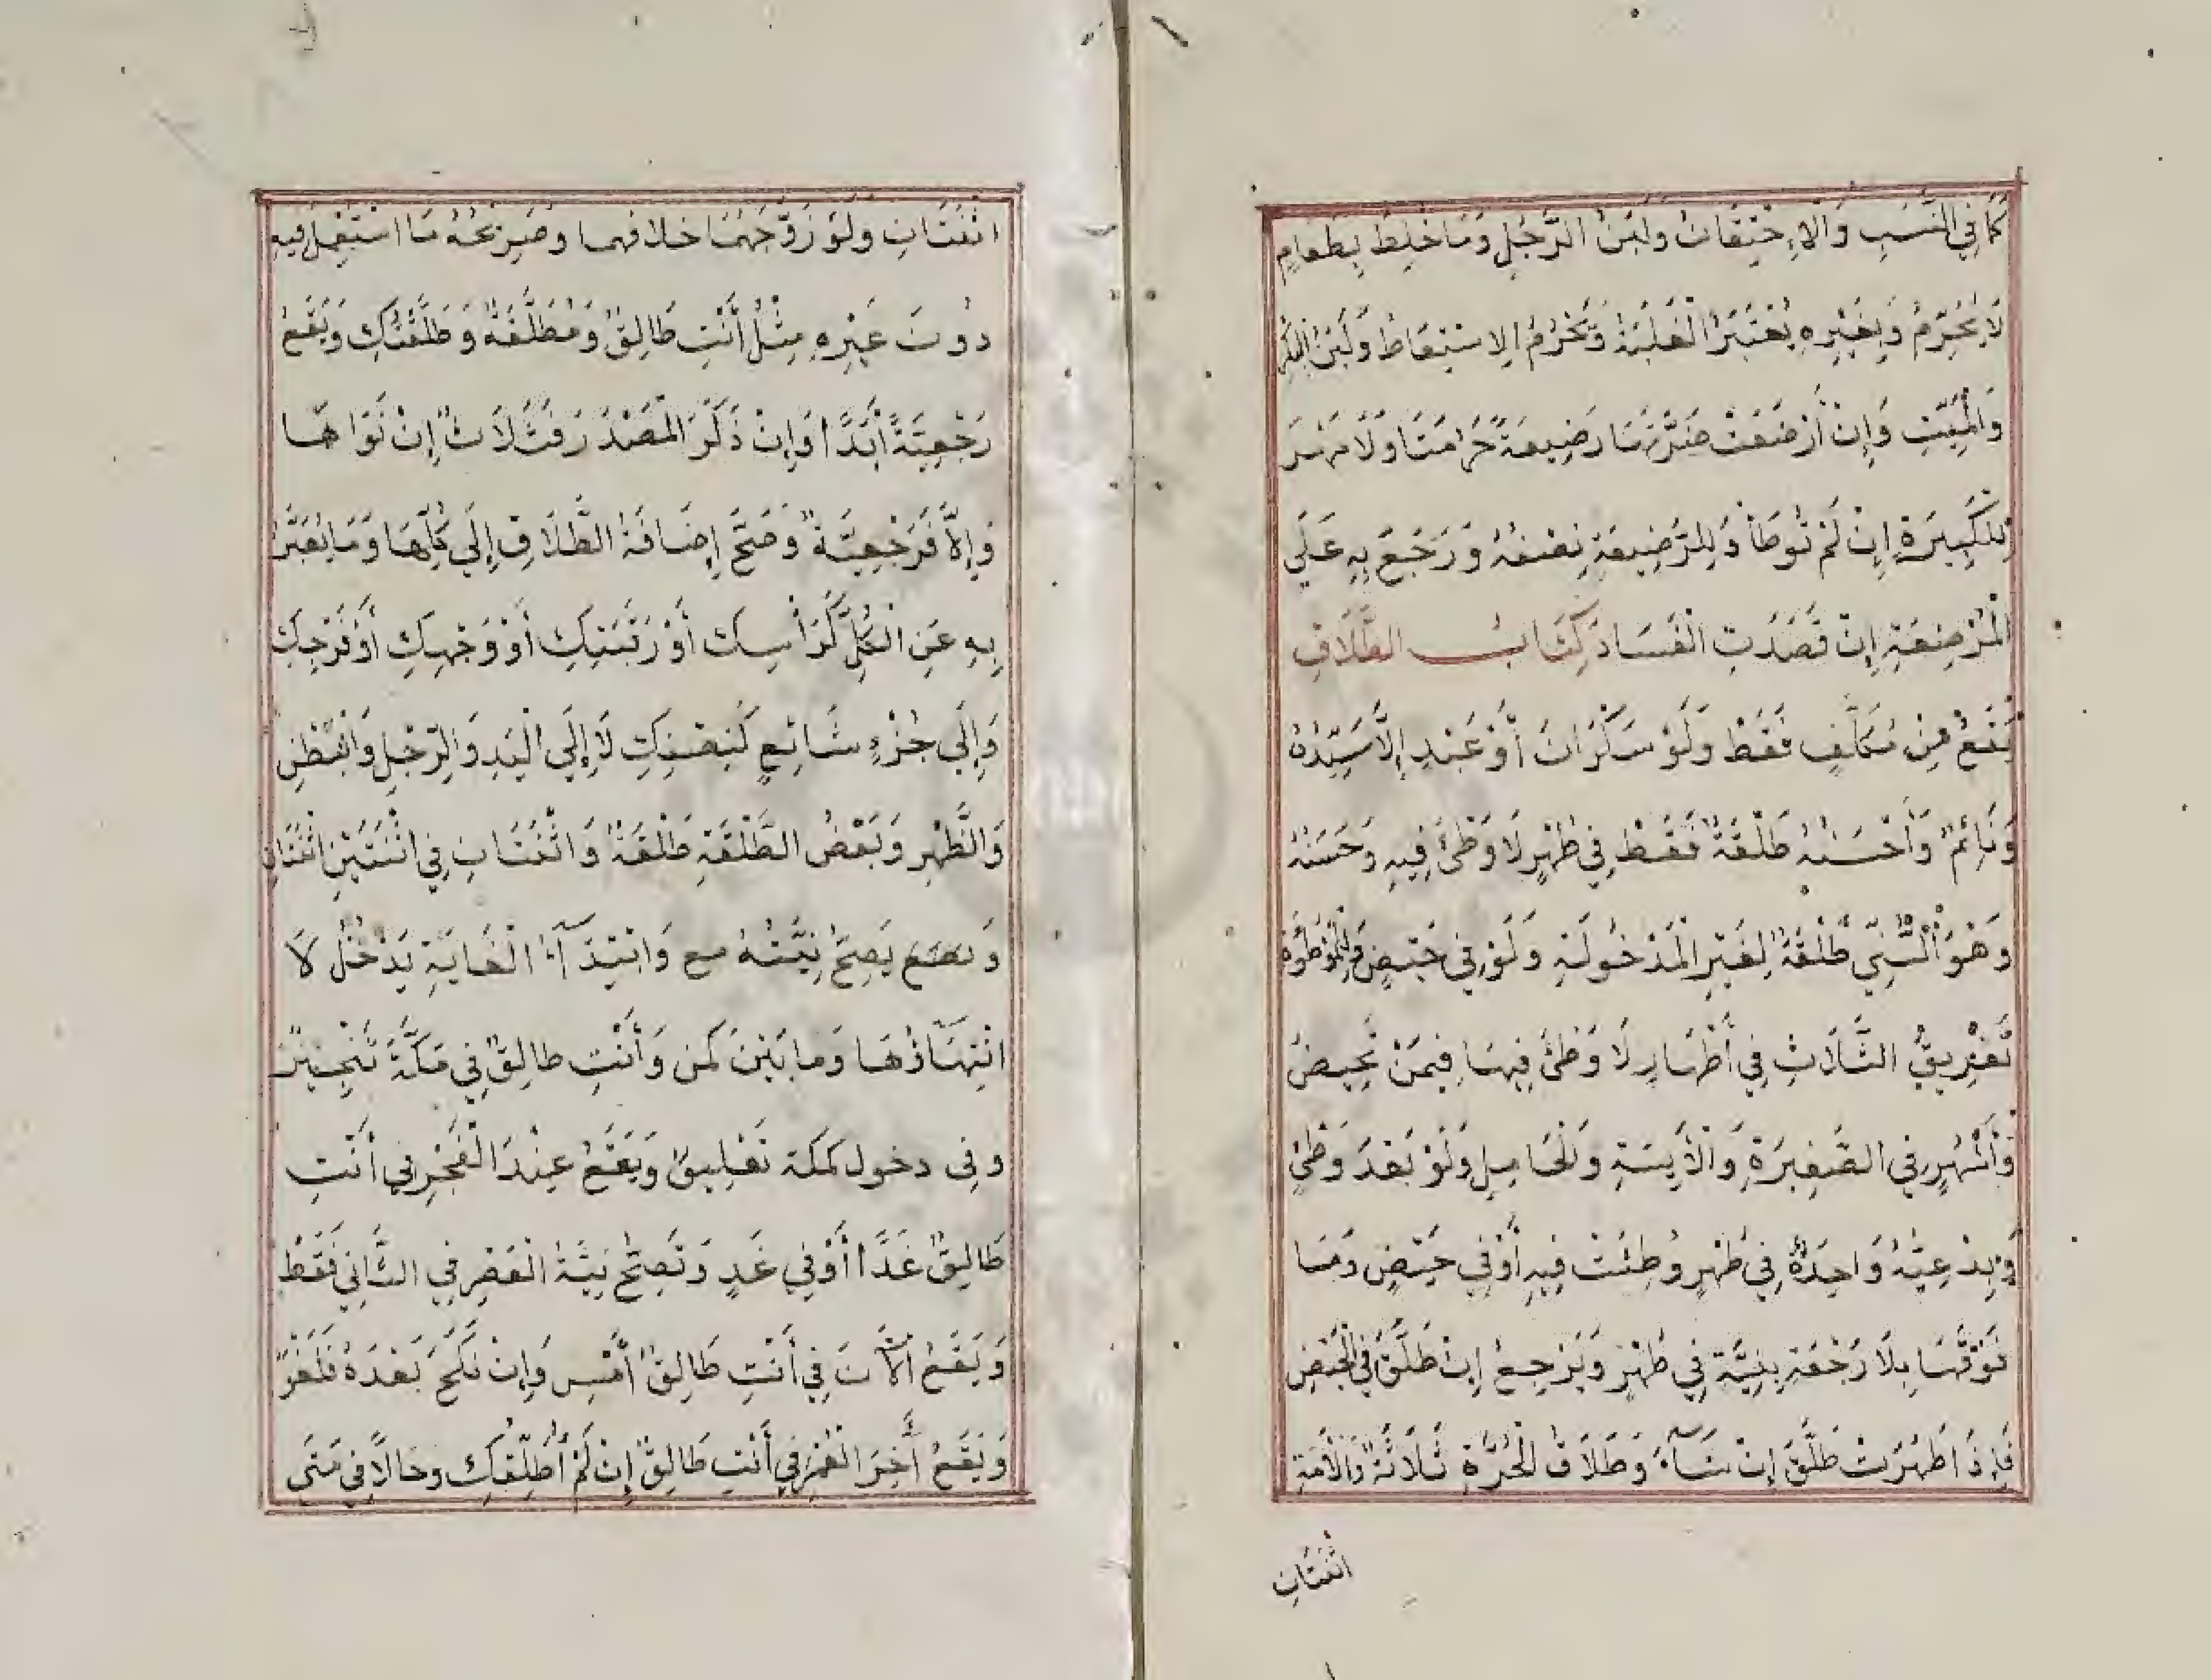 كَمَا فِي النَّسَبِ وَالْاِحْتِقَانُ وَلَبَنُ الرَّجُلِ وَمَا خُلِطَ بِطَعَامٍ
لَا يُحَرِّمُ وَبِغَيْرِهِ يُعْتَبَرُ الْغَلَبَةُ وَيُحَرِّمُ الِاسْتِعَاطُ وَلَبَنُ الْبِكْرِ
وَالْمَيِّتِ وَإِنْ أَرْضَعَتْ ضَرَّتَهَا رَضِيعَةً حَرُمَتَا وَلَا مَهْرَ
لِلْكَبِيرَةِ إِنْ لَمْ تُوطَأْ وَلِلرَّضِيعَةِ نِصْفُهُ وَرَجَعَ بِهِ عَلَى
الْمُرْضِعَةِ إِنْ قَصَدَتِ الْفَسَادَ كِتَابُ الطَّلَاقِ
يَقَعُ مِنْ مُكَلَّفٍ فَقَطْ وَلَوْ سَكْرَانَ أَوْ عَبْدٍ إِلَّا سَيِّدُهُ
وَنَائِمٌ وَأَحْسَنُهُ طَلْقَةٌ فَقَطْ فِي طُهْرٍ لَا وَطْئَ فِيهِ وَحَسَنُهُ
وَهُوَ السُّنِّي طَلْقَةٌ لِغَيْرِ الْمَدْخُولَةِ وَلَوْ فِي حَيْضٍ وَلِلْمَوْطُوءَةِ
تَفْرِيقُ الثَّلَاثِ فِي أَطْهَارٍ لَا وَطْئَ فِيهَا فِيمَنْ تَحِيضُ
وَأَشْهُرٍ فِي الصَّغِيرَةِ وَالْآيِسَةِ وَالْحَامِلِ وَلَوْ بَعْدَ وَطْئٍ
وَبِدْعِيَّهُ وَاحِدَةٌ فِي طُهْرٍ وُطِئَتْ فِيهِ أَوْ فِي حَيْضٍ وَمَا
فَوْقَهَا بِلَا رَجْعَةٍ بِنِيَّةٍ فِي طُهْرٍ وَيَرْجِعُ إِنْ طَلَّقَ فِي الْحَيْضِ
فَإِذَا طَهُرَتْ طَلَّقَ إِنْ شَآءَ وَطَلَاقُ الْحُرَّةِ ثَلَاثَةٌ وَالْأَمَةِ
اثْنَتَانِ
اثْنَتَانِ وَلَوْ زَوَّجَهُمَا خلافهما وصَرِيحُهُ مَا اسْتُعْمِلَ فِيهِ
دُونَ غَيْرِهِ مِثْلُ أَنْتِ طَالِقٌ وَمُطَلَّقَةٌ وَطَلَّقْتُكِ وَيَقَعُ
رَجْعِيَّةً أَبَدًا وَإِنْ ذَكَرَ الْمَصْدَرَ فَثَلَاثٌ إِنْ نَوَاهَا
وَإِلَّا فَرَجْعِيَّةٌ وَصَحَّ إِضَافَةُ الطَّلَاقِ إِلَى كُلِّهَا وَمَا يُعَبَّرُ
بِهِ عَنِ الْكُلِّ كَرَأْسِكِ أَوْ رَقَبَتِكِ أَوْ وَجْهِكِ أَوْ فَرْجِكِ
وَإِلَى جُزْءٍ شَائِعٍ كَنِصْفِكِ لَا إِلَى الْيَدِ وَالرِّجْلِ وَالْبَطْنِ
وَالظَّهْرِ وَبَعْضُ الطَّلْقَةِ طَلْقَةٌ وَاثْنَتَانِ فِي اثْنَتَيْنِ اثْنَتَانِ
وَيَصِحُّ نِيَّتُهُ مع وَابْتِدَآءُ الْغَايَةِ يَدْخُلُ لَا
انْتِهَاؤُهَا وَمَا بَيْنَ كَمِن وَأَنْتِ طالِقٌ فِي مَكَّةَ تَنْجِيزٌ
وفى دخول كمكة تَعْلِيقٌ وَيَقَعُ عِنْدَ الْفَجْرِ فِي أَنْتِ
طَالِقٌ غَدًا أَوْ فِي غَدٍ وَتَصِحُّ نِيَّةُ الْعَصْرِ فِي الثَّانِي فَقَطْ
وَيَقَعُ الْآنَ فِي أَنْتِ طَالِقٌ أَمْسِ وَإِنْ نَكَحَ بَعْدَهُ فَلَغْوٌ
وَيَقَعُ أَخِرَ الْعُمُرِ فِي أَنْتِ طَالِقٌ إِنْ لَمْ أُطَلِّقْكِ وحَالًا فِي مَتَى